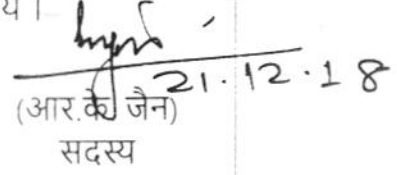 21.12.18
(आर.के जैन)
सदस्य